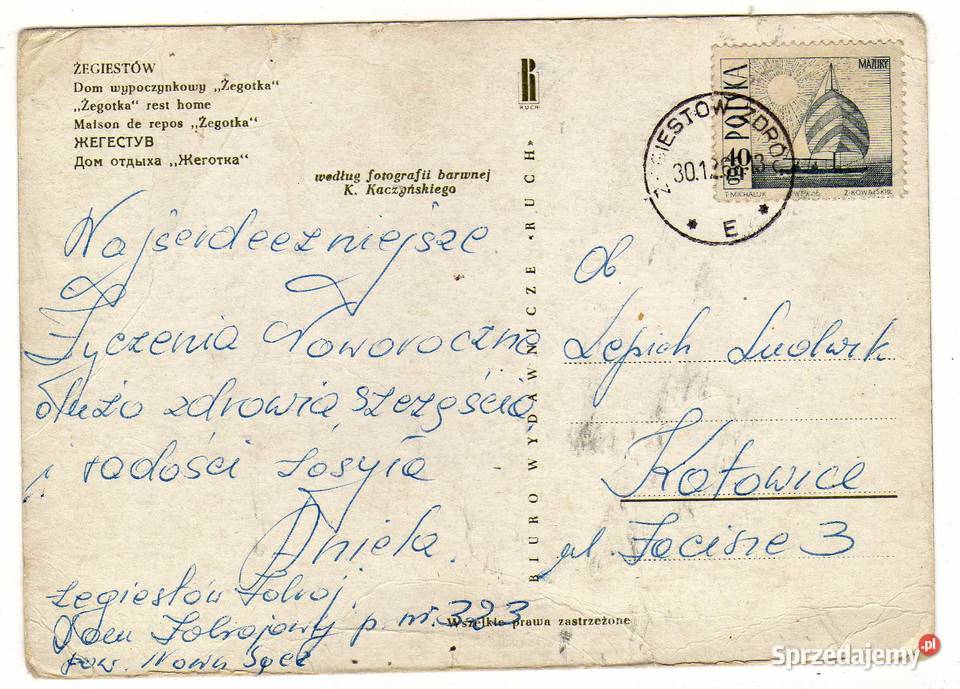 ŻEGIESTÓW
Dom wypoczynkowy „Żegotka“
„Żegotka“ rest home
Maison de repos „Żegotka“
ЖЕГЕСТУВ
Дом отдыха „Жеготка“
według fotografii barwnej
K. Kaczyńskiego
RUCH
BIURO WYDAWNICZE «RUCH»
POLSKA
40 gr
MAZURY
T. MICHALUK
Z. KOWALSKI
ŻEGIESTÓW ZDRÓJ
E
Najserdeczniejsze
Życzenia Noworoczne
dużo zdrowia szczęścia
i radości zasyła
Aniela.
Żegiestów Zdroj.
Dom Zdrojowy p. nr. 323
pow. Nowy Sącz
Ob
Lepich Ludwik
Katowice
pl. Zacisze 3
Wszelkie prawa zastrzeżone
Sprzedajemy.pl